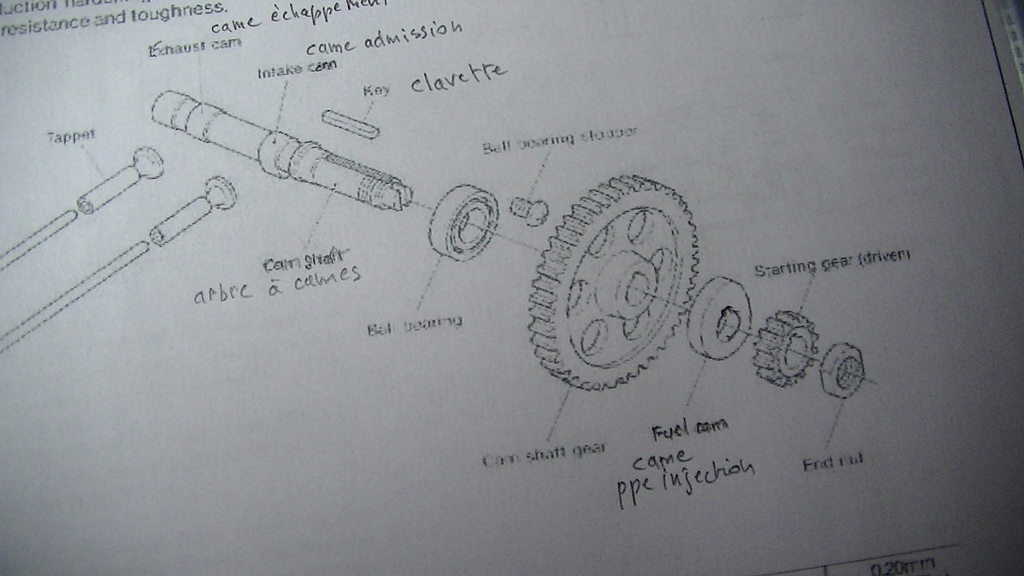 resistance and toughness.
came échappement
Exhaust cam
came admission
Intake cam
Key
clavette
Tappet
Ball bearing stopper
Cam shaft
arbre à cames
Starting gear (driven)
Ball bearing
Fuel cam
came
ppe injection
Cam shaft gear
End nut
0.20mm